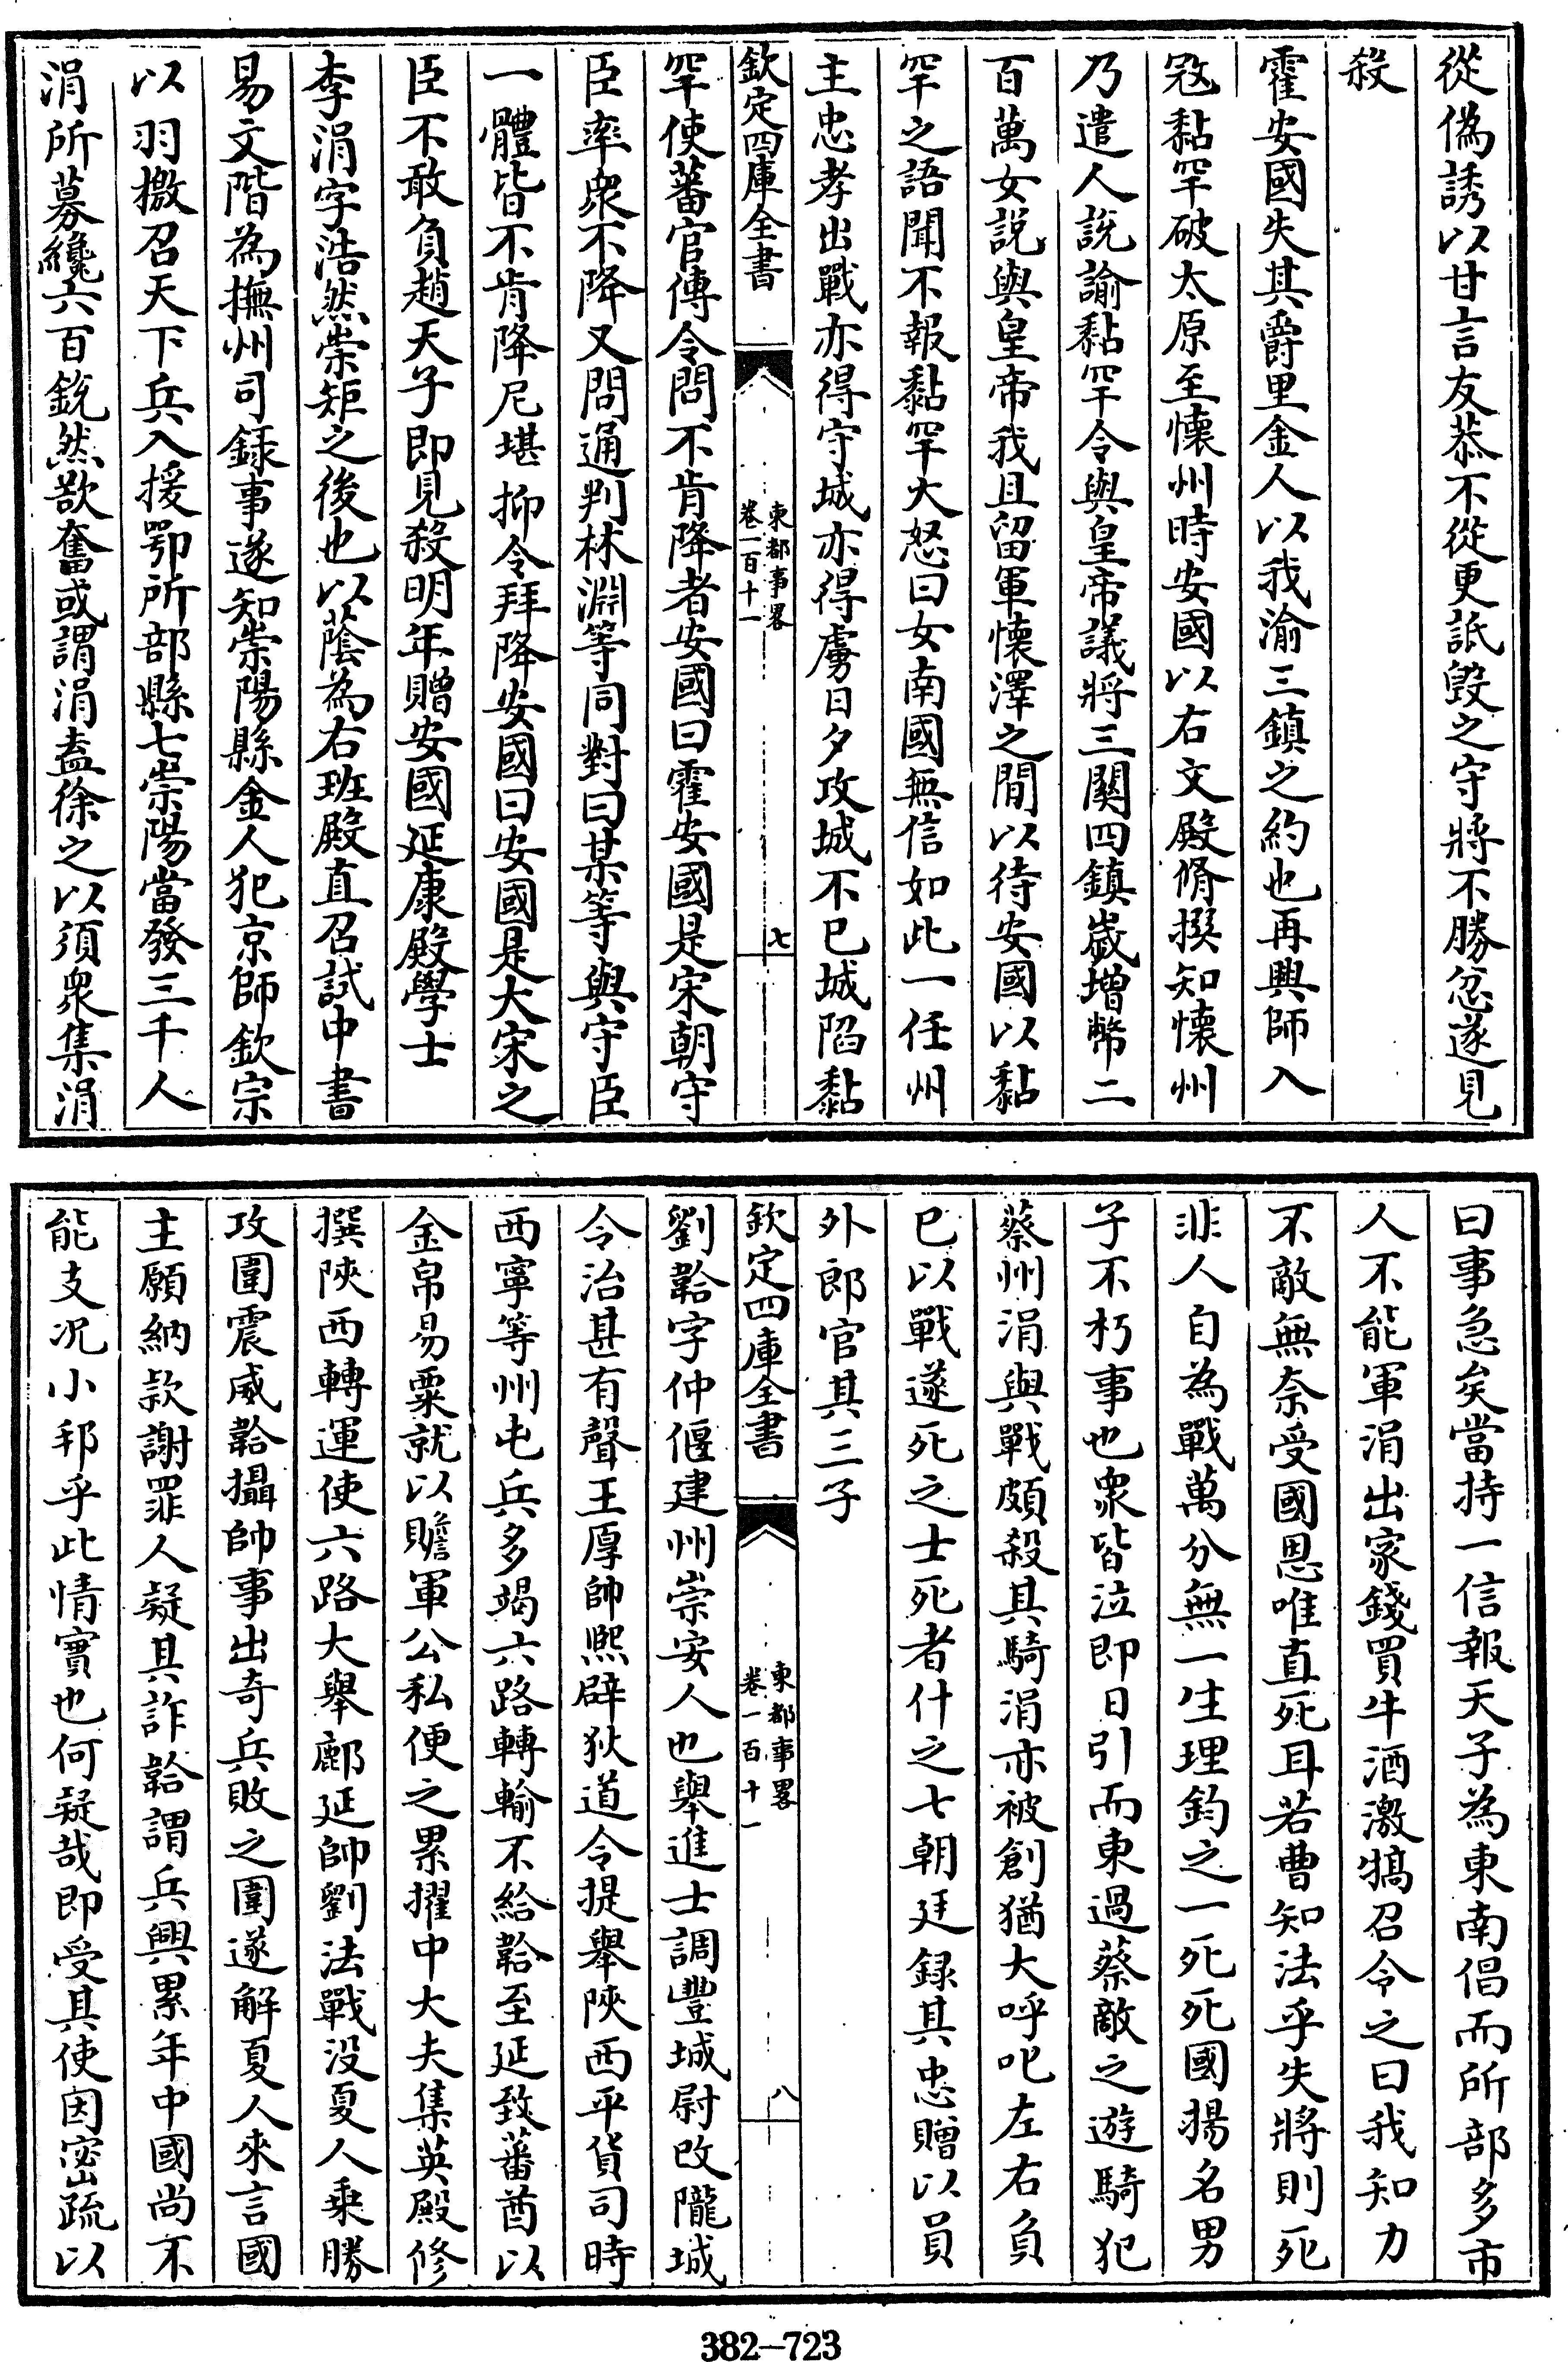 從偽誘以甘言友恭不從更詆毀之守將不勝忿遂見
殺
霍安國失其爵里金人以我渝三鎮之約也再興師入
宼黏罕破太原至懷州時安國以右文殿脩撰知懷州
乃遣人說諭黏罕令與皇帝議將三關四鎮歲增幣二
百萬女説與皇帝我且留軍懷澤之間以待安國以黏
罕之語聞不報黏罕大怒曰女南國無信如此一任州
主忠孝出戰亦得守城亦得虜日夕攻城不已城陷黏
欽定四庫全書
東都事畧
卷一百十一
七
罕使蕃官傳令問不肯降者安國曰霍安國是宋朝守
臣率衆不降又問通判林淵等同對曰某等與守臣
一體皆不肯降尼堪抑令拜降安國曰安國是大宋之
臣不敢負趙天子即見殺明年贈安國延康殿學士
李涓字浩然崇矩之後也以蔭為右班殿直召試中書
易文階為撫州司錄事遂知崇陽縣金人犯京師欽宗
以羽檄召天下兵入援鄂所部縣七崇陽當發三千人
涓所募纔六百銳然欲奮或謂涓盍徐之以須衆集涓
曰事急矣當持一信報天子為東南倡而所部多市
人不能軍涓出家錢買牛酒激犒召令之曰我知力
不敵無奈受國恩唯直死耳若曹知法乎失將則死
非人自為戰萬分無一生理鈞之一死死國揚名男
子不朽事也衆皆泣即日引而東過蔡敵之遊騎犯
蔡州涓與戰頗殺其騎涓亦被創猶大呼叱左右負
已以戰遂死之士死者什之七朝廷録其忠贈以員
外郎官其三子
欽定四庫全書
東都事畧
卷一百十一
八
劉韐字仲偃建州崇安人也舉進士調豐城尉改隴城
令治甚有聲王厚帥熙辟狄道令提舉陝西平貨司時
西寧等州屯兵多竭六路轉輸不給韐至延致蕃酋以
金帛易粟就以贍軍公私便之累擢中大夫集英殿修
撰陝西轉運使六路大舉鄜延帥劉法戰没夏人乘勝
攻圍震威韐攝帥事出奇兵敗之圍遂解夏人來言國
主願納欵謝罪人疑其詐韐謂兵興累年中國尚不
能支况小邦乎此情實也何疑哉即受其使因密疏以
382-723